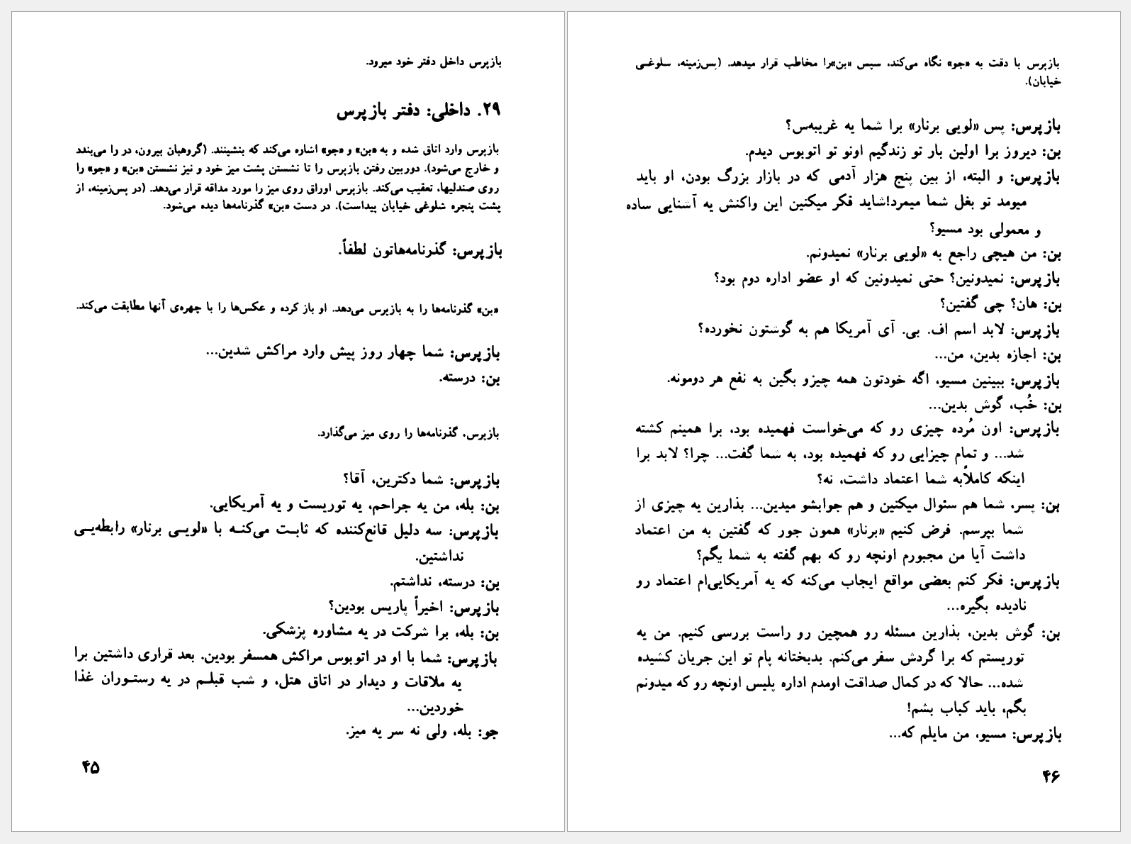 بازپرس داخل دفتر خود میرود.
۲۹. داخلی: دفتر بازپرس
بازپرس وارد اتاق شده و به «بن» و «جو» اشاره می‌کند که بنشینند. (گروهبان بیرون، در را می‌بندد
و خارج می‌شود). دوربین رفتن بازپرس را تا نشستن پشت میز خود و نیز نشستن «بن» و «جو» را
روی صندلیها، تعقیب می‌کند. بازپرس اوراق روی میز را مورد مداقه قرار می‌دهد. (در پس‌زمینه، از
پشت پنجره شلوغی خیابان پیداست). در دست «بن» گذرنامه‌ها دیده می‌شود.
بازپرس: گذرنامه‌هاتون لطفاً.
«بن» گذرنامه‌ها را به بازپرس می‌دهد. او باز کرده و عکس‌ها را با چهره‌ی آنها مطابقت می‌کند.
بازپرس: شما چهار روز پیش وارد مراکش شدین...
بن: درسته.
بازپرس، گذرنامه‌ها را روی میز می‌گذارد.
بازپرس: شما دکترین، آقا؟
بن: بله، من یه جراحم، یه توریست و یه آمریکایی.
بازپرس: سه دلیل قانع‌کننده که ثابت می‌کنه با «لویی برنار» رابطه‌یی
نداشتین.
بن: درسته، نداشتم.
بازپرس: اخیراً پاریس بودین؟
بن: بله، برا شرکت در یه مشاوره پزشکی.
بازپرس: شما با او در اتوبوس مراکش همسفر بودین. بعد قراری داشتین برا
یه ملاقات و دیدار در اتاق هتل، و شب قبلم در یه رستوران غذا
خوردین...
جو: بله، ولی نه سر یه میز.
۴۵
بازپرس با دقت به «جو» نگاه می‌کند، سپس «بن»را مخاطب قرار میدهد. (پس‌زمینه، سلوغی
خیابان).
بازپرس: پس «لویی برنار» برا شما یه غریبه‌س؟
بن: دیروز برا اولین بار تو زندگیم اونو تو اتوبوس دیدم.
بازپرس: و البته، از بین پنج هزار آدمی که در بازار بزرگ بودن، او باید
میومد تو بغل شما میمرد!شاید فکر میکنین این واکنش یه آشنایی ساده
و معمولی بود مسیو؟
بن: من هیچی راجع به «لویی برنار» نمیدونم.
بازپرس: نمیدونین؟ حتی نمیدونین که او عضو اداره دوم بود؟
بن: هان؟ چی گفتین؟
بازپرس: لابد اسم اف. بی. آی آمریکا هم به گوشتون نخورده؟
بن: اجازه بدین، من...
بازپرس: ببینین مسیو، اگه خودتون همه چیزو بگین به نفع هر دومونه.
بن: خُب، گوش بدین...
بازپرس: اون مُرده چیزی رو که می‌خواست فهمیده بود، برا همینم کشته
شد... و تمام چیزایی رو که فهمیده بود، به شما گفت... چرا؟ لابد برا
اینکه کاملاًبه شما اعتماد داشت، نه؟
بن: بسر، شما هم سئوال میکنین و هم جوابشو میدین... بذارین یه چیزی از
شما بپرسم. فرض کنیم «برنار» همون جور که گفتین به من اعتماد
داشت آیا من مجبورم اونچه رو که بهم گفته به شما بگم؟
بازپرس: فکر کنم بعضی مواقع ایجاب می‌کنه که یه آمریکایی‌ام اعتماد رو
نادیده بگیره...
بن: گوش بدین، بذارین مسئله رو همچین رو راست بررسی کنیم. من یه
توریستم که برا گردش سفر می‌کنم. بدبختانه پام تو این جریان کشیده
شده... حالا که در کمال صداقت اومدم اداره پلیس اونچه رو که میدونم
بگم، باید کباب بشم!
بازپرس: مسیو، من مایلم که...
۴۶